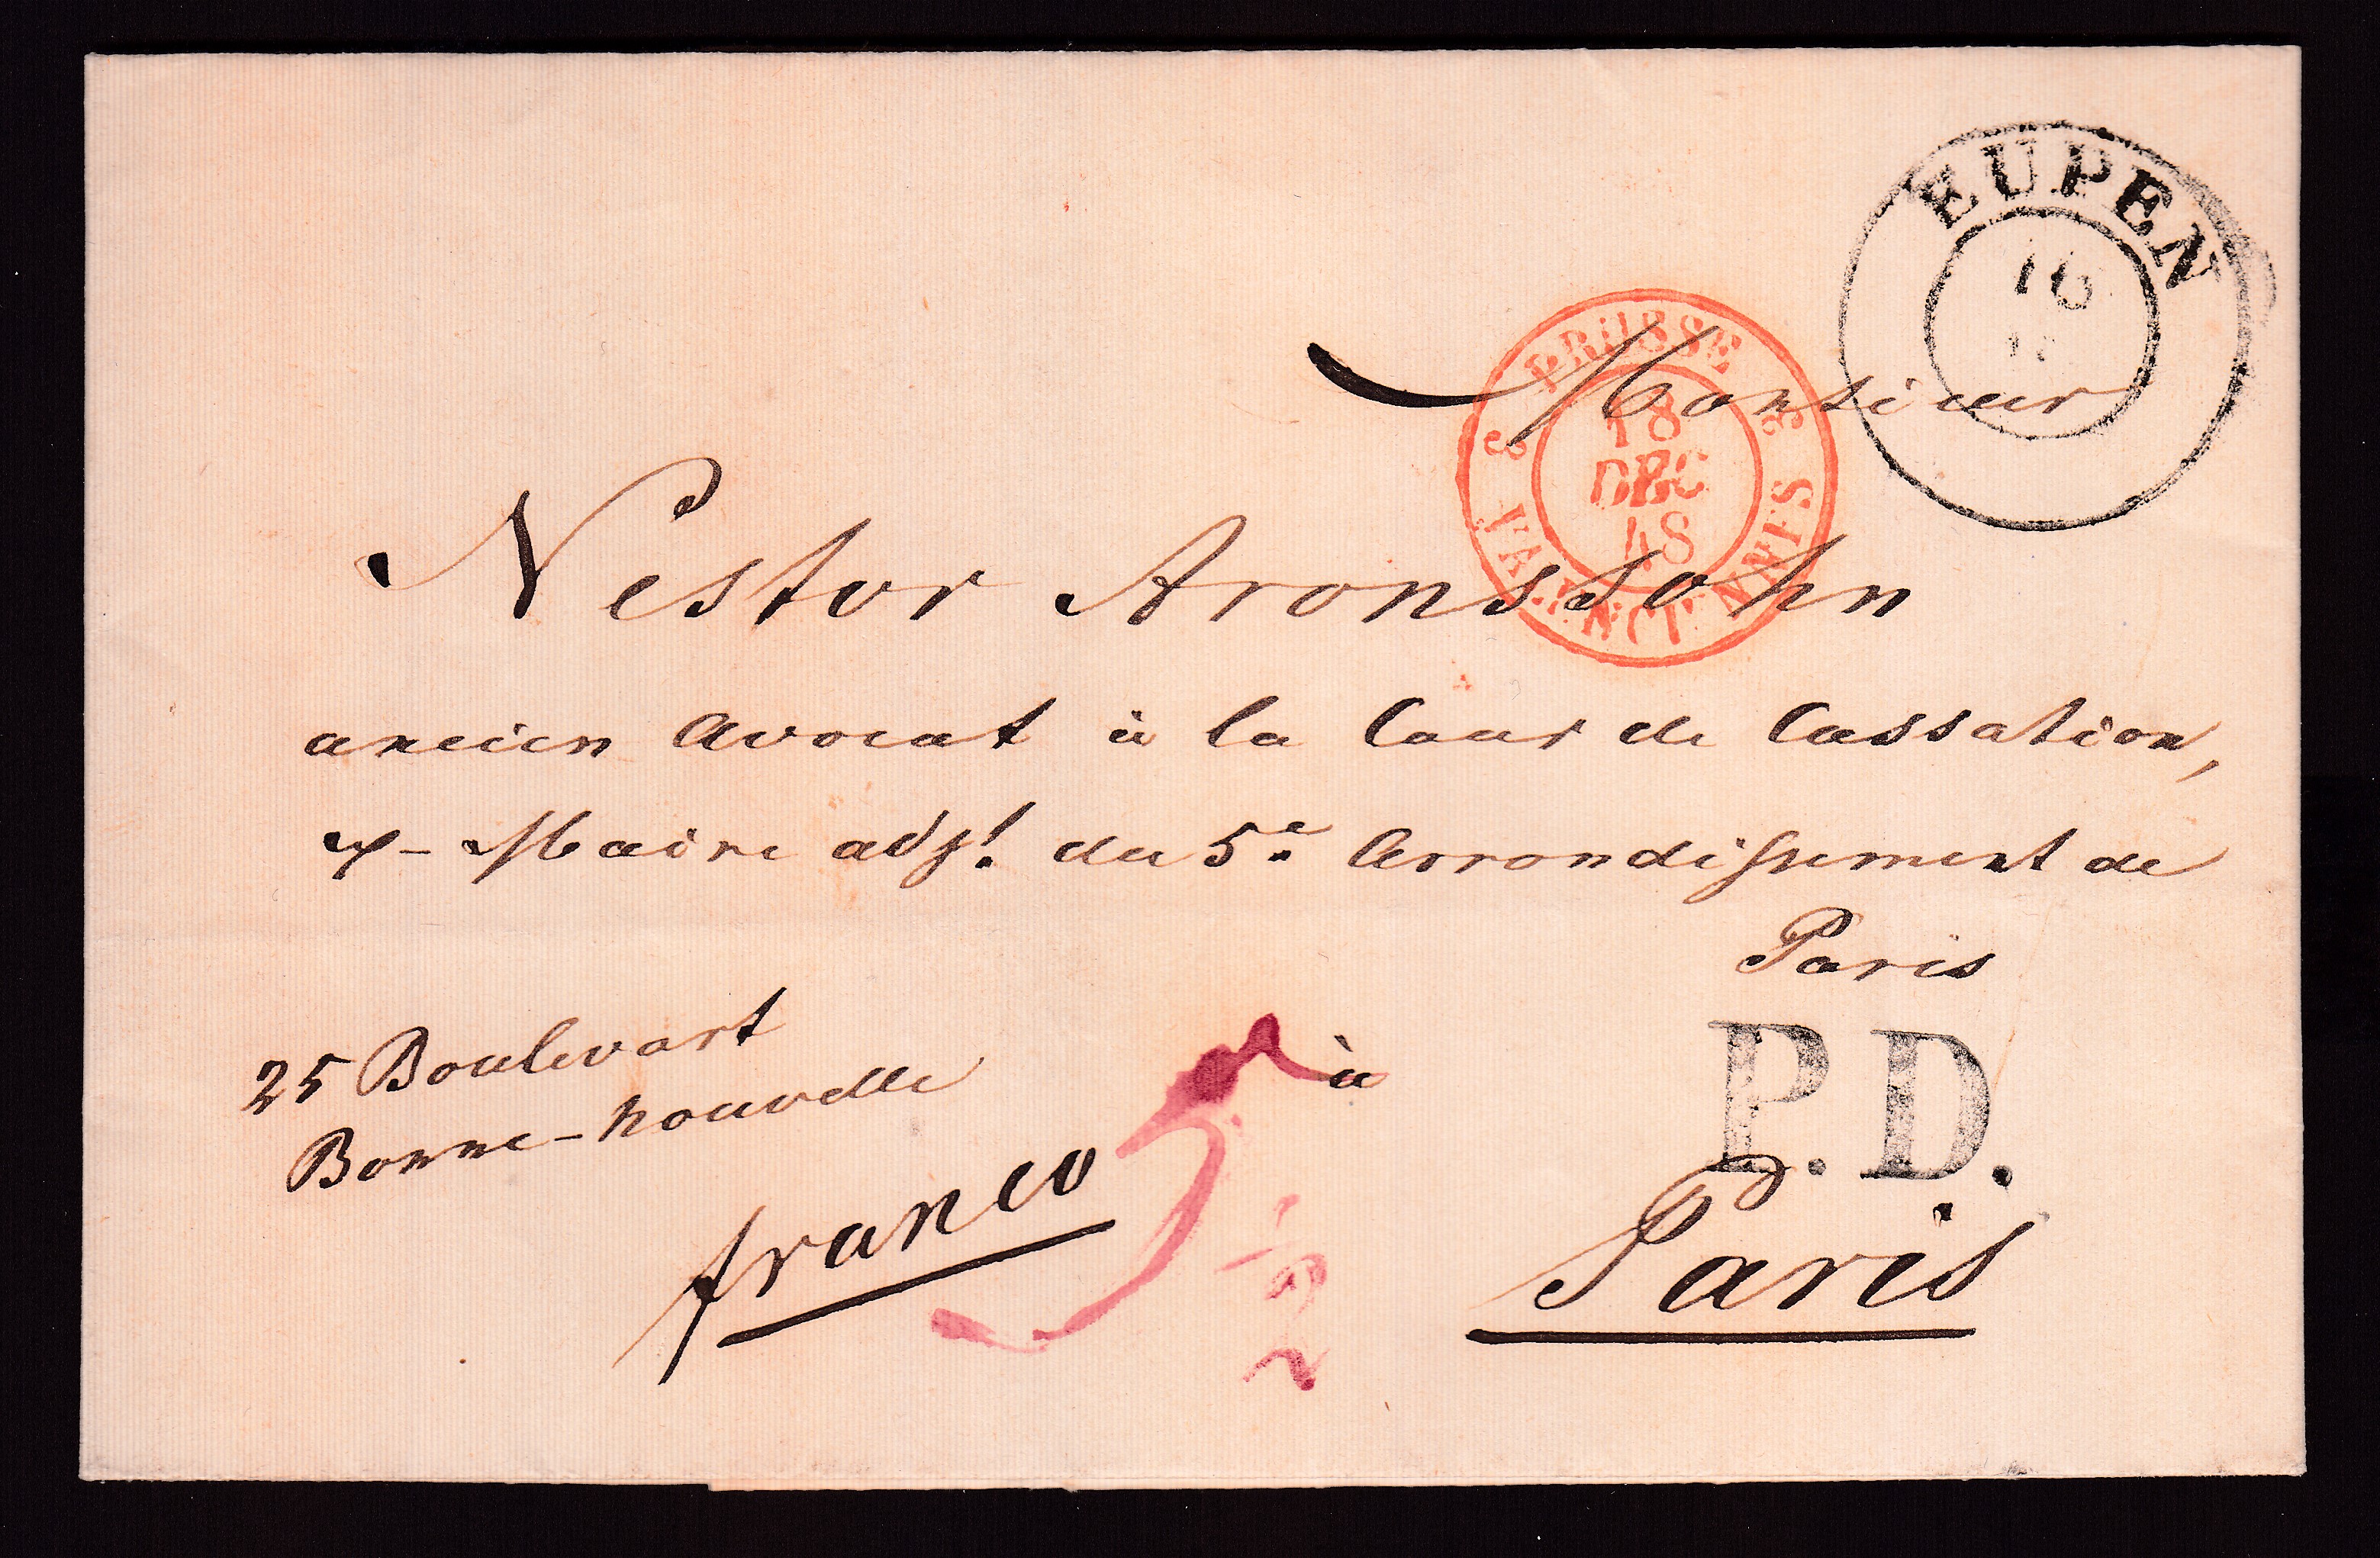 EUPEN
16
PRUSSE
18
DEC
48
VALENCIENNES
Monsieur
Nestor Aronssohn
ancien Avocat à la Cour de Cassation,
ex-Maire adjt. du 5e Arrondissement de
Paris
25 Boulevart
Bonne-nouvelle
à
P.D.
franco
Paris